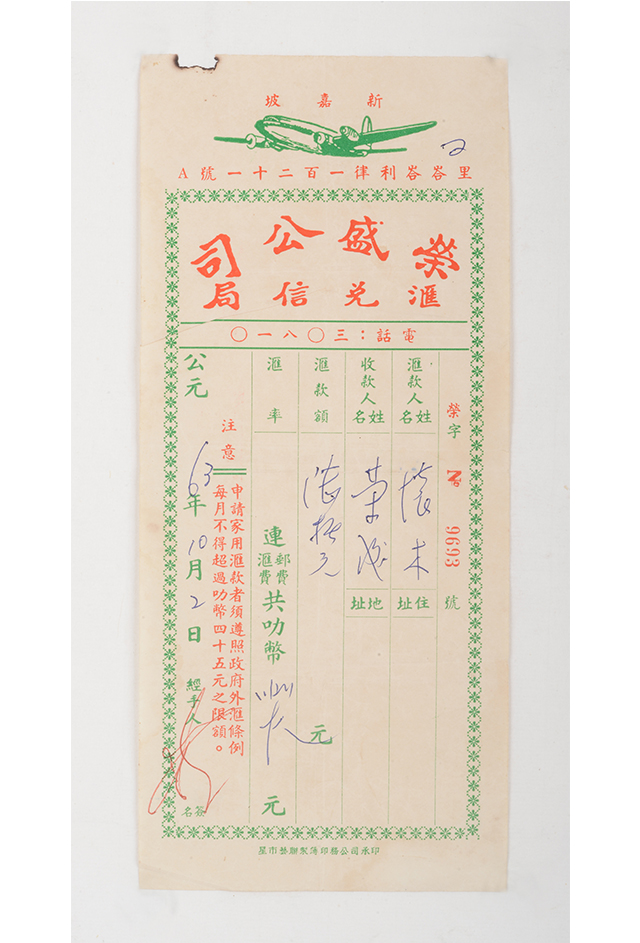 新嘉坡
里峇峇利律一百二十一號A
榮盛公司
滙兌信局
電話：三〇八一〇
榮字 No 9693 號
滙款人姓名
住址
收款人姓名
地址
滙款額
元
滙率
連郵費滙費共叻幣
元
注意
申請家用滙款者須遵照政府外滙條例
每月不得超過叻幣四十五元之限額。
公元63年10月2日
經手人
簽名